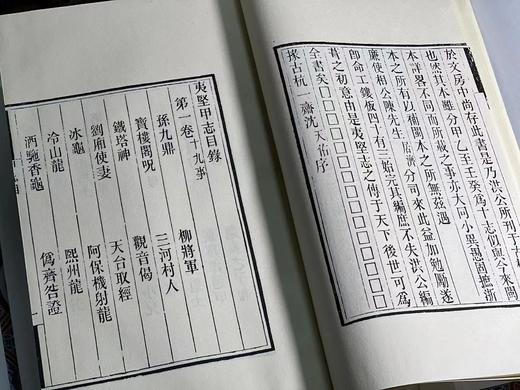 於文房中尚存此書是乃洪公所刊于古
也然其本雖分甲乙至壬癸為十志似與今來閩
本詳畧不同而所載之事亦大同小異愚因摭浙
本之所有以補閩本之所無茲遇
廉使相公陳先生居濟分司來此益加勉勵遂
即命工鏤板四十有三始完其編庶不失洪公編
葺之初意由是夷堅志之傳于天下後世可為
全書矣□□□□□□□□□□□□□□
掾古杭一齋沈天佑序
夷堅甲志目錄
第一卷十九事
孫九鼎 柳將軍
寶樓閣咒 三河村人
鐵塔神 觀音偈
劉廂使妻 天台取經
冰龜 阿保機射龍
冷山龍 熙州龍
酒駞香龜 偽齊咎證